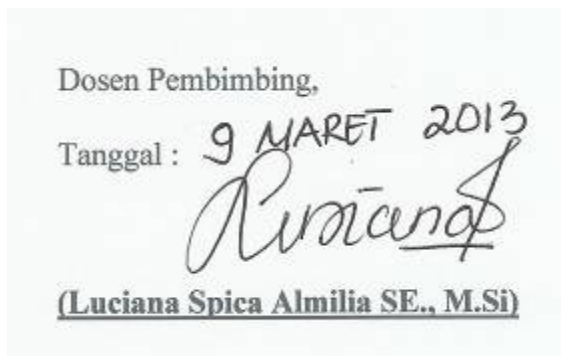 Dosen Pembimbing,
Tanggal : 9 MARET 2013
Lusiana
(Luciana Spica Almilia SE., M.Si)